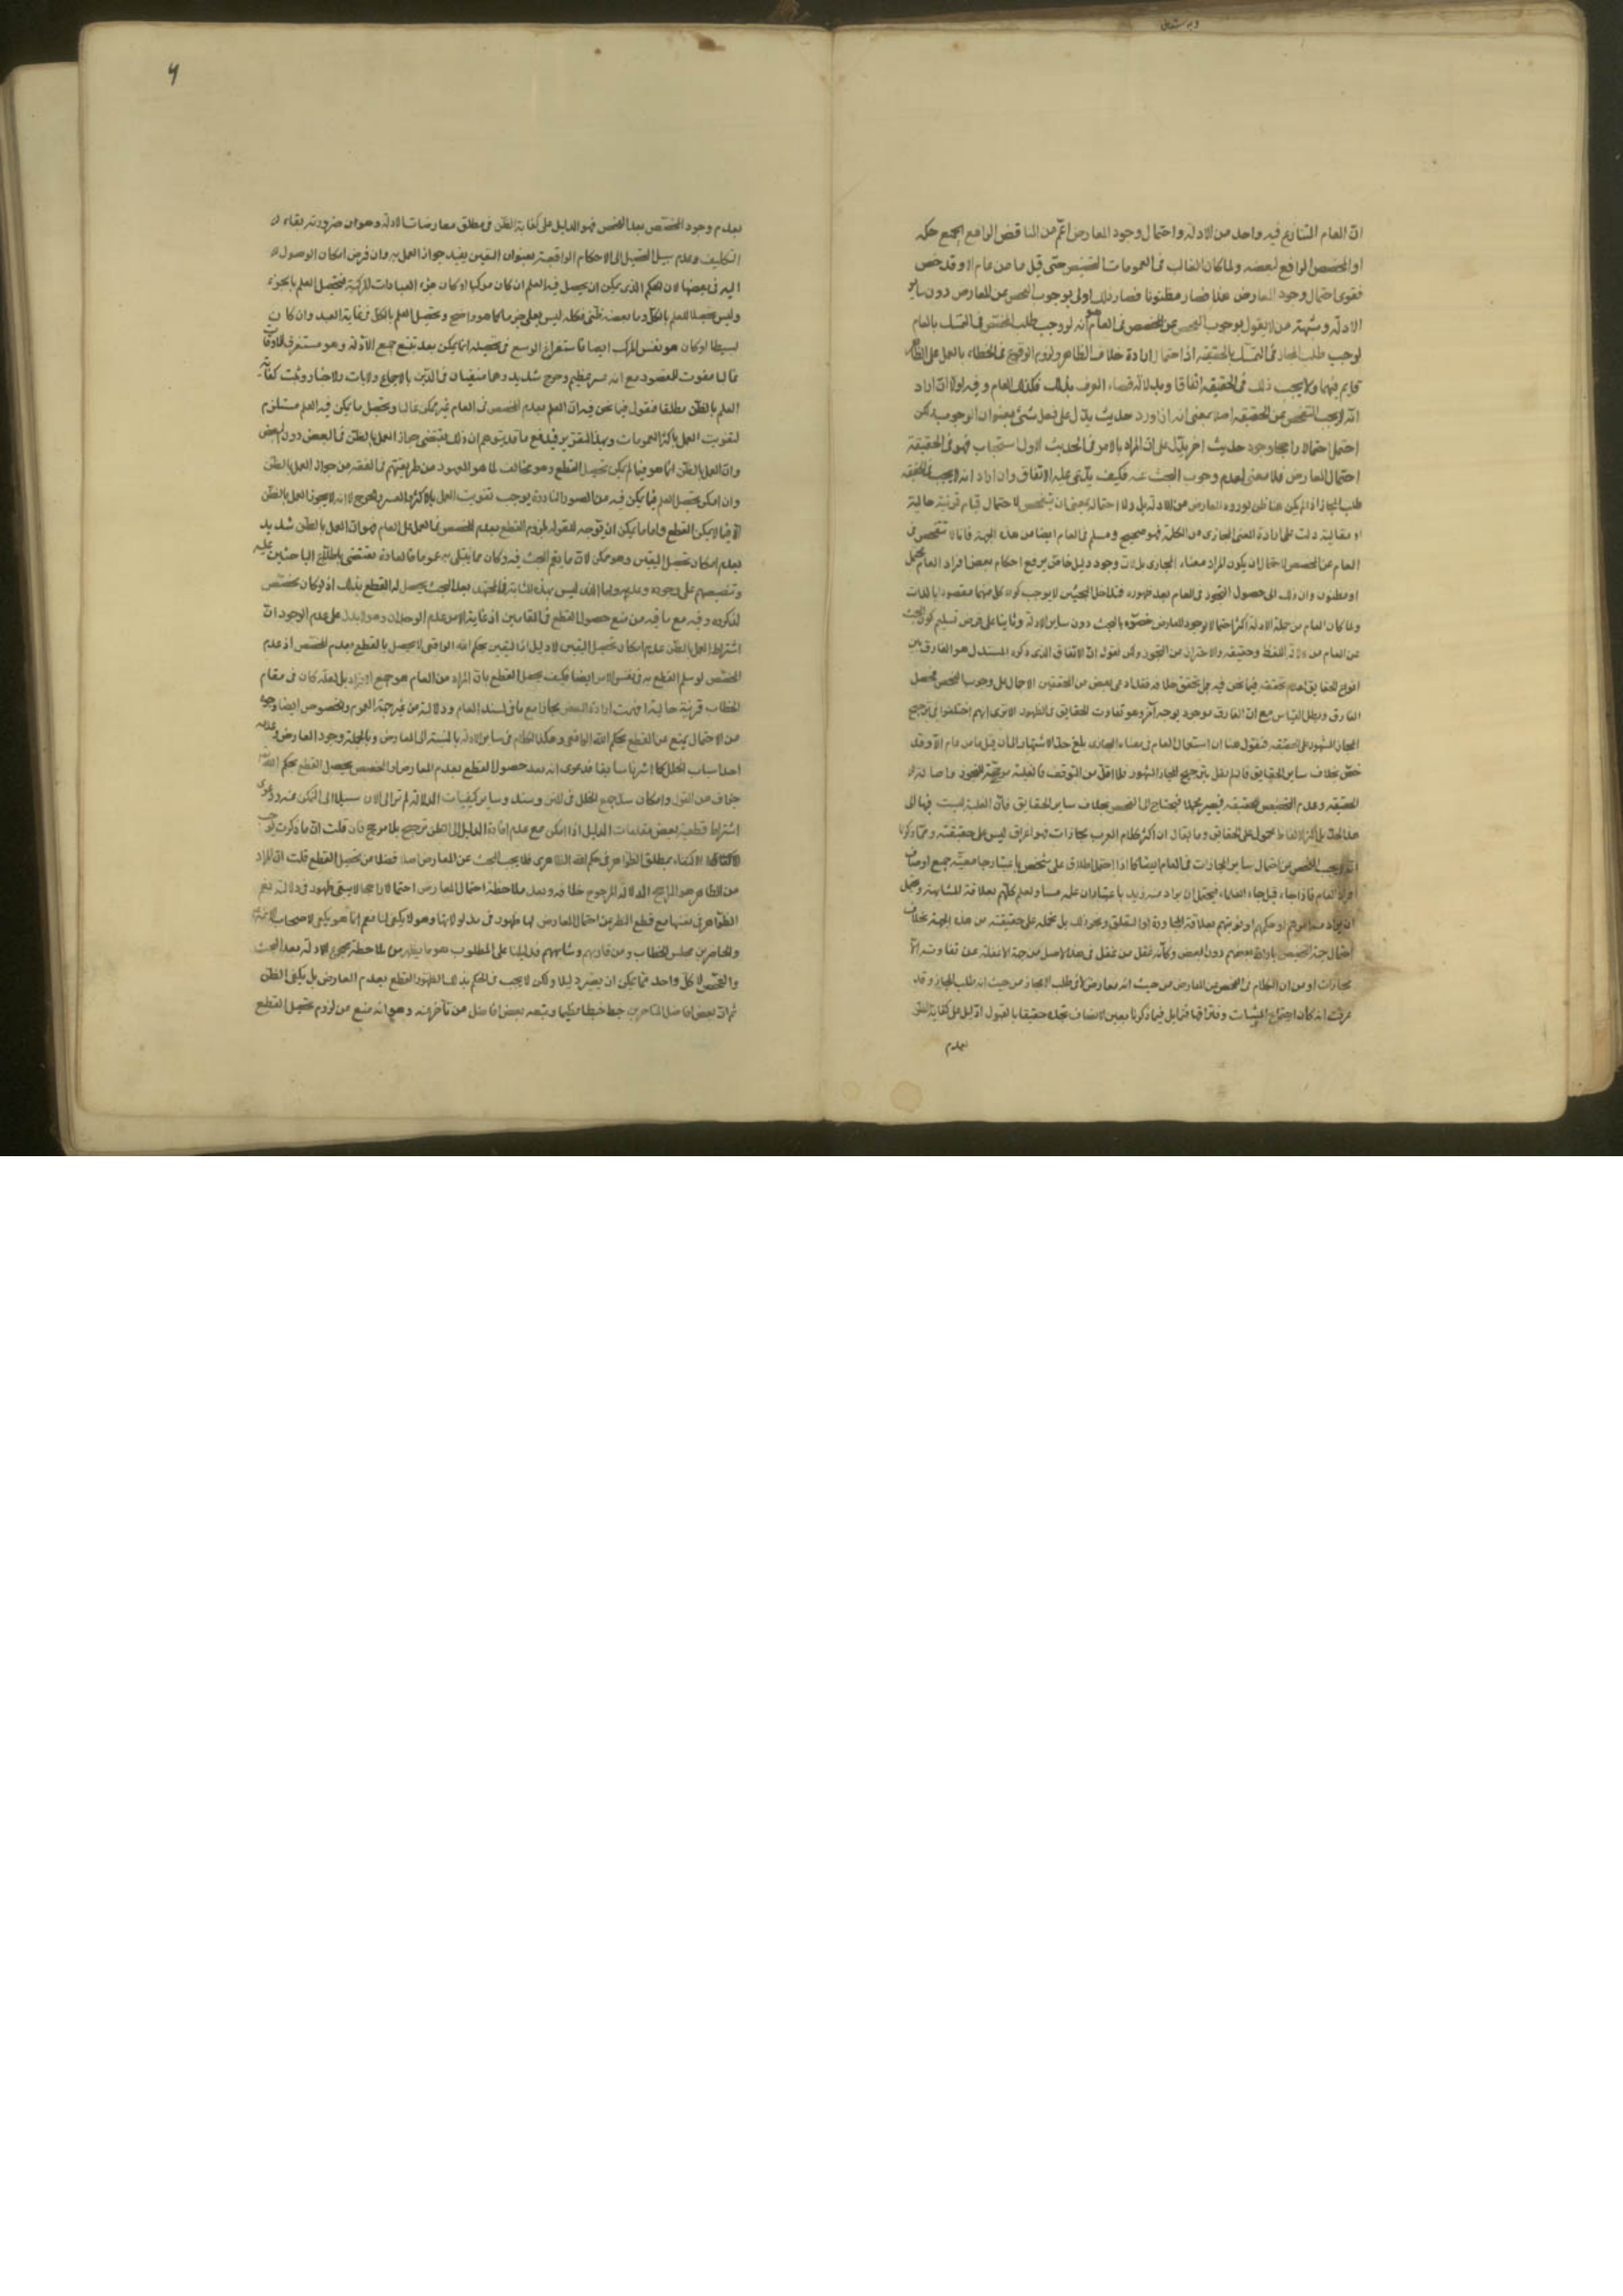 انّ العام المتنازع فيه واحد من الادلة واحتمال وجود المعارض اعمّ من المناقض الرافع لجميع حكمه
او المخصص الرافع لبعضه ولما كان الغالب فى العمومات التخصيص حتى قيل ما من عام الا وقد خص
فقوى احتمال وجود المعارض هنا فصار مظنونا فصار ذلك اولى بوجوب الفحص عن المعارض دون ساير
الادلّة وشبهة من لا يقول بوجوب الفحص عن المخصص فى العام هو أنه لو وجب طلب المخصّص فى التمسّك بالعام
لوجب طلب المجاز فى التمسّك بالحقيقة اذ احتمال ارادة خلاف الظاهر ولزوم الوقوع فى الخطاء بالعمل على الظاهر
قايم فيهما ولا يجب ذلك فى الحقيقة اتفاقا وبدلالة قضاء العرف بذلك فكذلك العام وفيه اولا انّه ان اراد
انّه لا يجب الفحص عن الحقيقة اصلا بمعنى انه اذا ورد حديث يدلّ على فعل شئ بعنوان الوجوب لكن
احتمل احتمالا راجحا وجود حديث اخر يدلّ على انّ المراد بالامر فى الحديث الاول استحباب فهو فى الحقيقة
احتمال المعارض فلا معنى لعدم وجوب البحث عنه فكيف يدّعى عليه الاتفاق وان اراد انه لا يجب فى الحقيقة
طلب المجاز اذا لم يكن هنا ظن بورود المعارض من الادلة بل ولا احتماله بمعنى ان يتفحص لاحتمال قيام قرينة حالية
او مقالية دلت على ارادة المعنى المجازى من الكلمة فهو صحيح ومسلم فى العام ايضا من هذه الجهة فانا لا نتفحص فى
العام عن المخصص لاحتمال ان يكون المراد معناه المجازى بل لانّ وجود دليل خاص يرفع احكام بعض افراد العام محتمل
او مظنون وان ذلك الى حصول التجوز فى العام بعد ظهوره فتداخل البحثين لا يوجب كون كل منهما مقصودا بالذات
ولما كان العام من جملة الادلة اكثر احتمالا لوجود المعارض خصّوه بالبحث دون ساير الادلة وثانيا على فرض تسليم كون البحث
عن العام من دلالة اللفظ وحقيقته والاحتراز من التجوز ولكن نقول انّ الاتفاق الذى ذكره المستدل هو الفارق بين
انواع الحقايق لعدم تحققه فيما نحن فيه بل تحقق خلافه فقد ادعى بعض من المحققين الاجماع على وجوب الفحص فحصل
الفارق وبطل القياس مع انّ الفارق موجود بوجه آخر وهو تفاوت الحقايق فى الظهور الا ترى انهم اختلفوا فى ترجيح
المجاز المشهور على الحقيقة فنقول هنا ان استعمال العام فى معناه المجازى بلغ حدّ الاشتهار الى ان قيل ما من عام الّا وقد
خصّ بخلاف ساير الحقايق فان لم نقل بترجيح المجاز المشهور فلا اقلّ من التوقف
هذا الحدّ بل اكثر الالفاظ محمول على الحقايق وما يقال ان اكثر كلام العرب مجازات فهو اغراق ليس على حقيقته وممّا ذكرنا
احتمال جهة التخصيص بارادة بعضهم دون البعض وكانّه غفل من غفل فى هذا الاصل من جهة الغفلة عن تفاوت انواع
مجازات او من ان الكلام فى الفحص عن المعارض من حيث انه معارض لا فى طلب المجاز من حيث انه طلب المجاز وقد
بعدم
بعدم وجود المخصّص بعد الفحص فهو الدليل على كفاية الظنّ فى مطلق معارضات الادلة وهو ان ضرورة بقاء
التكليف وعدم سبيل التحصيل الى الاحكام الواقعية بعنوان اليقين يفيد جواز العمل به وان فرض امكان الوصول
اليه فى بعضها لان الحكم الذى يمكن ان يحصل فيه العلم ان كان مركبا او كان جزء العبادات المركبة فتحصيل العلم بالجزء
وليس تحصيلا للعلم بالكلّ وما بعضه ظنّى فكله ليس بعلمى جزما كما هو واضح وتحصيل العلم بالكل فى غاية البعد وان كان
بسيطا او كان هو نفس المركب ايضا فاستفراغ الوسع فى تحصيله انما يمكن بعد تتبع جميع الادّلة وهو مستغرق للاوقات
غالبا مفوت للمقصود مع انه عسر عظيم وحرج شديد وهما منفيان فى الدّين بالاجماع والايات والاخبار وثبت كفاية
العمل بالظن مطلقا فنقول فيما نحن فيه انّ العلم بعدم المخصص فى العام غير ممكن غالبا وتحصيل ما يمكن فيه العلم مستلزم
لتفويت العمل باكثر العمومات وبهذا التقرير يندفع ما قد يتوهم ان ذلك يقتضى جواز العمل بالظنّ فى البعض دون البعض
وانّ العمل بالظن انما هو فيما لم يمكن تحصيل القطع وهو مخالف لما هو المعهود من طريقتهم فى الفقه من جواز العمل بالظنّ
وان امكن تحصيل العلم فيما يمكن فيه من الصور النادرة يوجب تفويت العمل بالاكثر والعسر والحرج لا انه لا يجوز العمل بالظنّ
الّا فيما لا يمكن القطع واما ما يمكن ان يوجه للقول بلزوم القطع بعدم المخصص فى العمل على العام فهو انّ العمل بالظن شديد
بعدم امكان تحصيل اليقين وهو ممكن لانّ ما يقع البحث فيه وكان مما يبتلى به عموما فالعادة تقتضى باطلاع الباحثين عليه
وتنصيصهم على وجوده وعدمه واما الذى ليس بهذه المثابة فالمجتهد بعد البحث يحصل له القطع بذلك اذ لو كان مخصّص
لذكروه وفيه مع ما فيه من منع حصول القطع فى المقامين اذ غاية الامر عدم الوجدان وهو لا يدل على عدم الوجود انّ
اشتراط العمل بالظن عدم امكان تحصيل اليقين لا دليل اذ اليقين بحكم الله الواقعى لا يحصل بالقطع بعدم المخصّص اذ عدم
المخصّص لو سلم القطع به فى نفس الامر ايضا فكيف يحصل القطع بانّ المراد من العام هو جميع الافراد بل لعله كان فى مقام
الخطاب قرينة حالية افهمت ارادة البعض مجازا مع ما فى سند العام ودلالته من غير جهة العموم والخصوص ايضا وجوه
من الاحتمال يمنع عن القطع بحكم الله الواقعى وهكذا الكلام فى ساير الادلة بالنسبة الى المعارض وبالجملة وجود المعارض وعدمه
احد اسباب الخلل كما اشرنا سابقا فدعوى انه بعد حصول القطع بعدم المعارض او المخصص يحصل القطع بحكم الله
جزاف من القول وامكان سدّ جميع الخلل فى المتن وسنده وساير كيفيات الدلالة لم نر الى الان سبيلا الى التمكن منه ودعوى
اشتراط قطعية بعض مقدمات الدليل اذا امكن مع عدم افادة الدليل الا الظن ترجيح بلا مرجح فان قلت انّ ما ذكرت يوجب
الاكتفاء بمطلق الظواهر فى حكم الله الظاهرى فلا يجب البحث عن المعارض اصلا فضلا من تحصيل القطع قلت انّ المراد
من الظاهر هو الراجح الدلالة المرجوح خلافه وبعد ملاحظة احتمال المعارض احتمالا راجحا لا يبقى ظهور فى دلالته نعم
الظواهر فى نفسها مع قطع النظر عن احتمال المعارض لها ظهور فى مدلولاتها وهو لا يكفى لنا نعم انما هو يكفى لاصحاب الائمة
والحاضرين مجلس الخطاب ومن قاربهم وشابههم فدليلنا على المطلوب هو ما يظهر من ملاحظة مجموع الادلة بعد البحث
والفحص لا كلّ واحد مما يمكن ان يصير دليلا ولكن لا يجب فى الحكم بذلك الظهور القطع بعدم المعارض بل يكفى الظن
ثم انّ بعض افاضل المتاخرين خبط خبطا عظيما وتبعه بعض افاضل من تأخر عنه وهو انه منع من لزوم تحصيل القطع